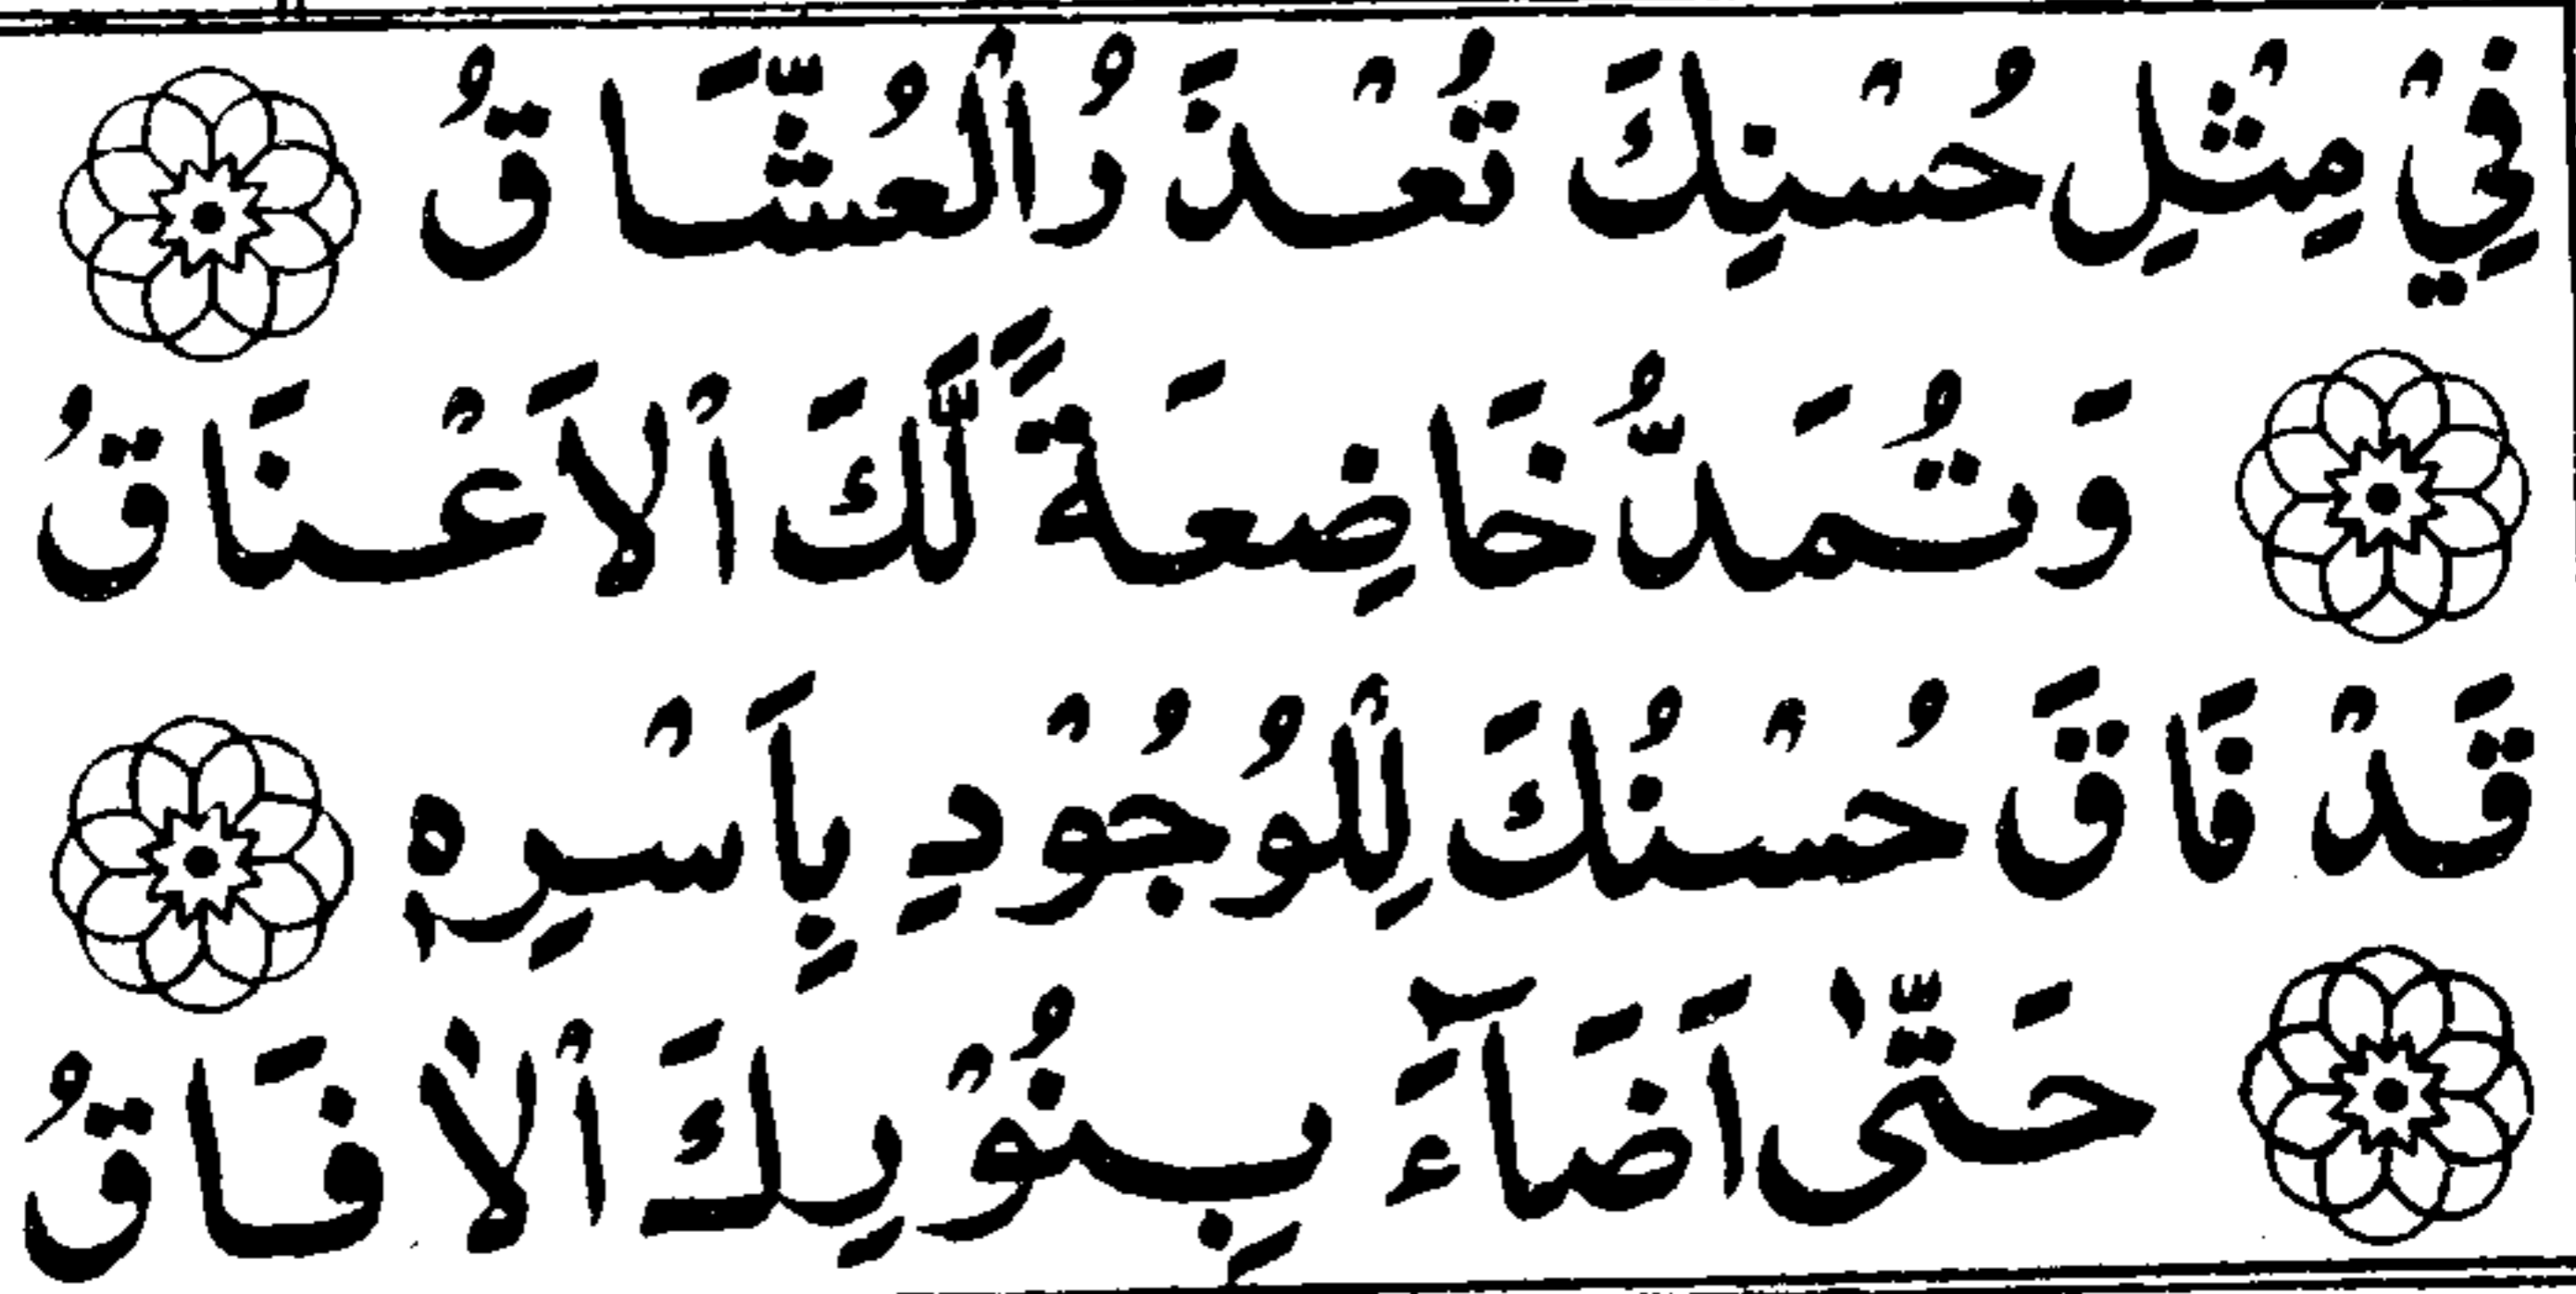 فِيْ مِثْلِ حُسْنِكَ تُعْذَرُ الْعُشَّاقُ
وَتُمَدُّ خَاضِعَةً لَّكَ الْاَعْنَاقُ
قَدْ فَاقَ حُسْنُكَ لِلْوُجُوْدِ بِاَسْرِهٖ
حَتّٰى اَضَآءَ بِنُوْرِكَ الْاٰفَاقُ